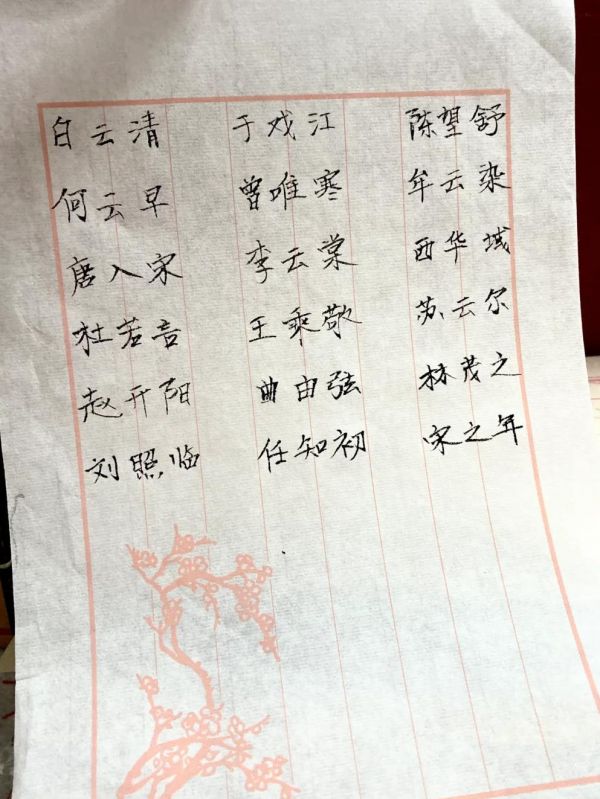 白云清 于戏江 陈望舒
何云早 曾唯寒 牟云染
唐入宋 李云棠 西华域
杜若言 王乘敬 苏云尔
赵开阳 曲由弦 林茂之
刘照临 任知初 宋之年